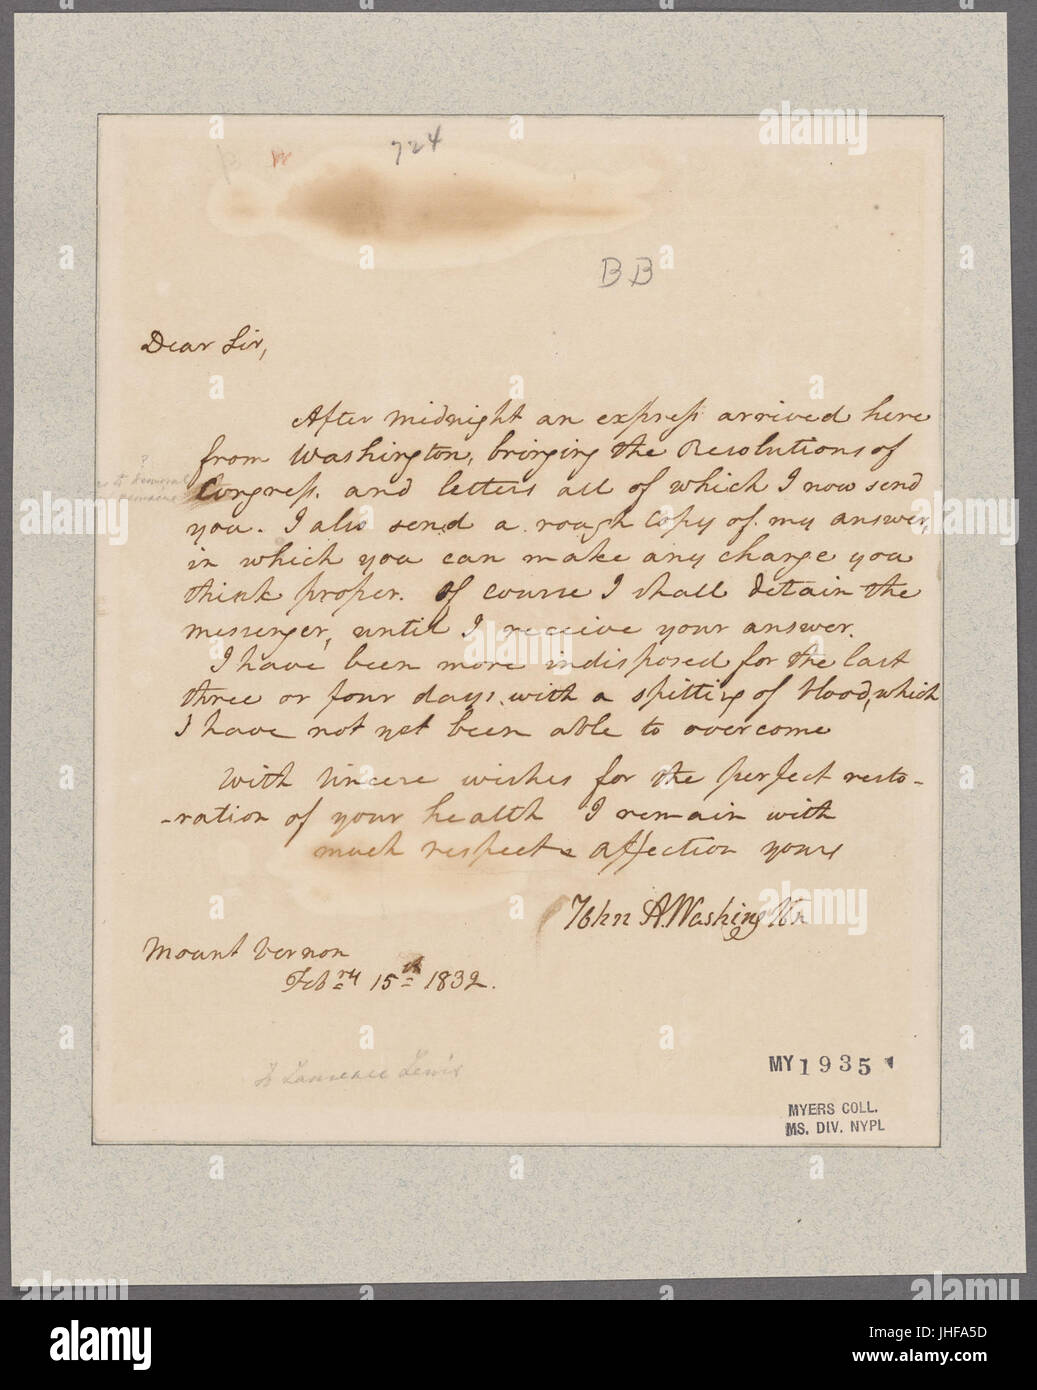 724
BB
Dear Sir,
After midnight an express arrived here
from Washington, bringing the Resolutions of
Congress. and letters all of which I now send
you. I also send a rough copy of my answer,
in which you can make any change you
think proper. Of course I shall detain the
messenger, until I receive your answer.
I have been more indisposed for the last
three or four days, with a spitting of blood, which
I have not yet been able to overcome
With sincere wishes for the perfect resto-
-ration of your health I remain with
much respect & affection yours
John A. Washington
Mount Vernon
Febry 15th 1832.
To Lawrence Lewis
MY 1935
MYERS COLL.
MS. DIV. NYPL
alamy
Image ID: JHFA5D
www.alamy.com